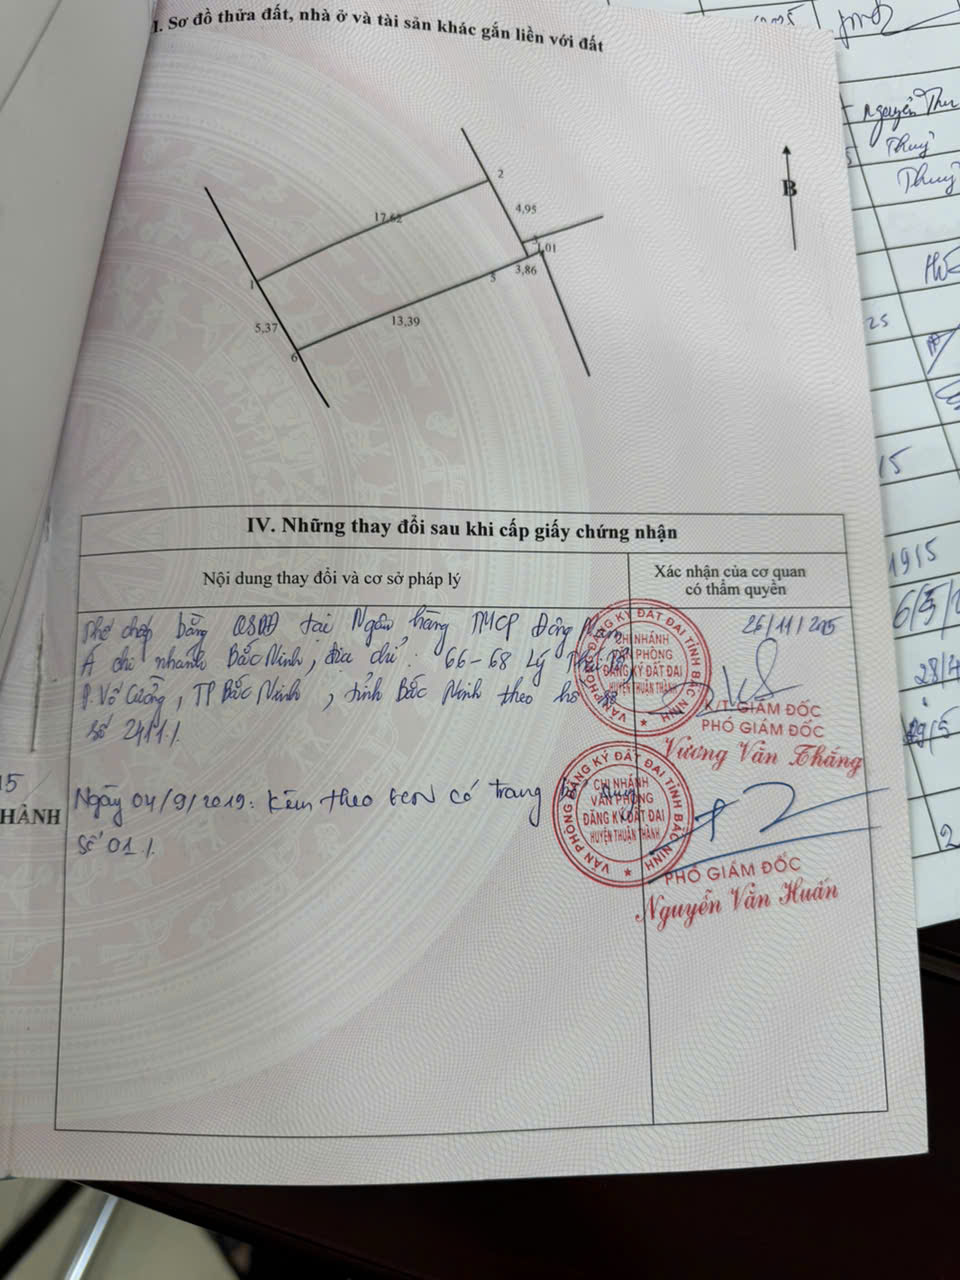 I. Sơ đồ thửa đất, nhà ở và tài sản khác gắn liền với đất
B
2
17,62
4,95
3
1,01
1
3,86
5
5,37
13,39
6
IV. Những thay đổi sau khi cấp giấy chứng nhận
Nội dung thay đổi và cơ sở pháp lý
Xác nhận của cơ quan
có thẩm quyền
Thế chấp bằng QSDĐ tại Ngân hàng TMCP Đông Nam
Á chi nhánh Bắc Ninh, địa chỉ: 66-68 Lý Thái Tổ
P. Võ Cường, TP Bắc Ninh, tỉnh Bắc Ninh theo hồ sơ
số 2411./.
26/11/2015
VĂN PHÒNG ĐĂNG KÝ ĐẤT ĐAI TỈNH BẮC NINH
CHI NHÁNH
VĂN PHÒNG
ĐĂNG KÝ ĐẤT ĐAI
HUYỆN THUẬN THÀNH
K/T GIÁM ĐỐC
PHÓ GIÁM ĐỐC
Vương Văn Thắng
Ngày 04/9/2019: Kèm theo GCN có trang bổ sung
Số 01./.
VĂN PHÒNG ĐĂNG KÝ ĐẤT ĐAI TỈNH BẮC NINH
CHI NHÁNH
VĂN PHÒNG
ĐĂNG KÝ ĐẤT ĐAI
HUYỆN THUẬN THÀNH
PHÓ GIÁM ĐỐC
Nguyễn Văn Huấn
15
HÀNH
Nguyễn Thu
Thuỷ
Thuỷ
25
15
19/5
28/4
29/5
2